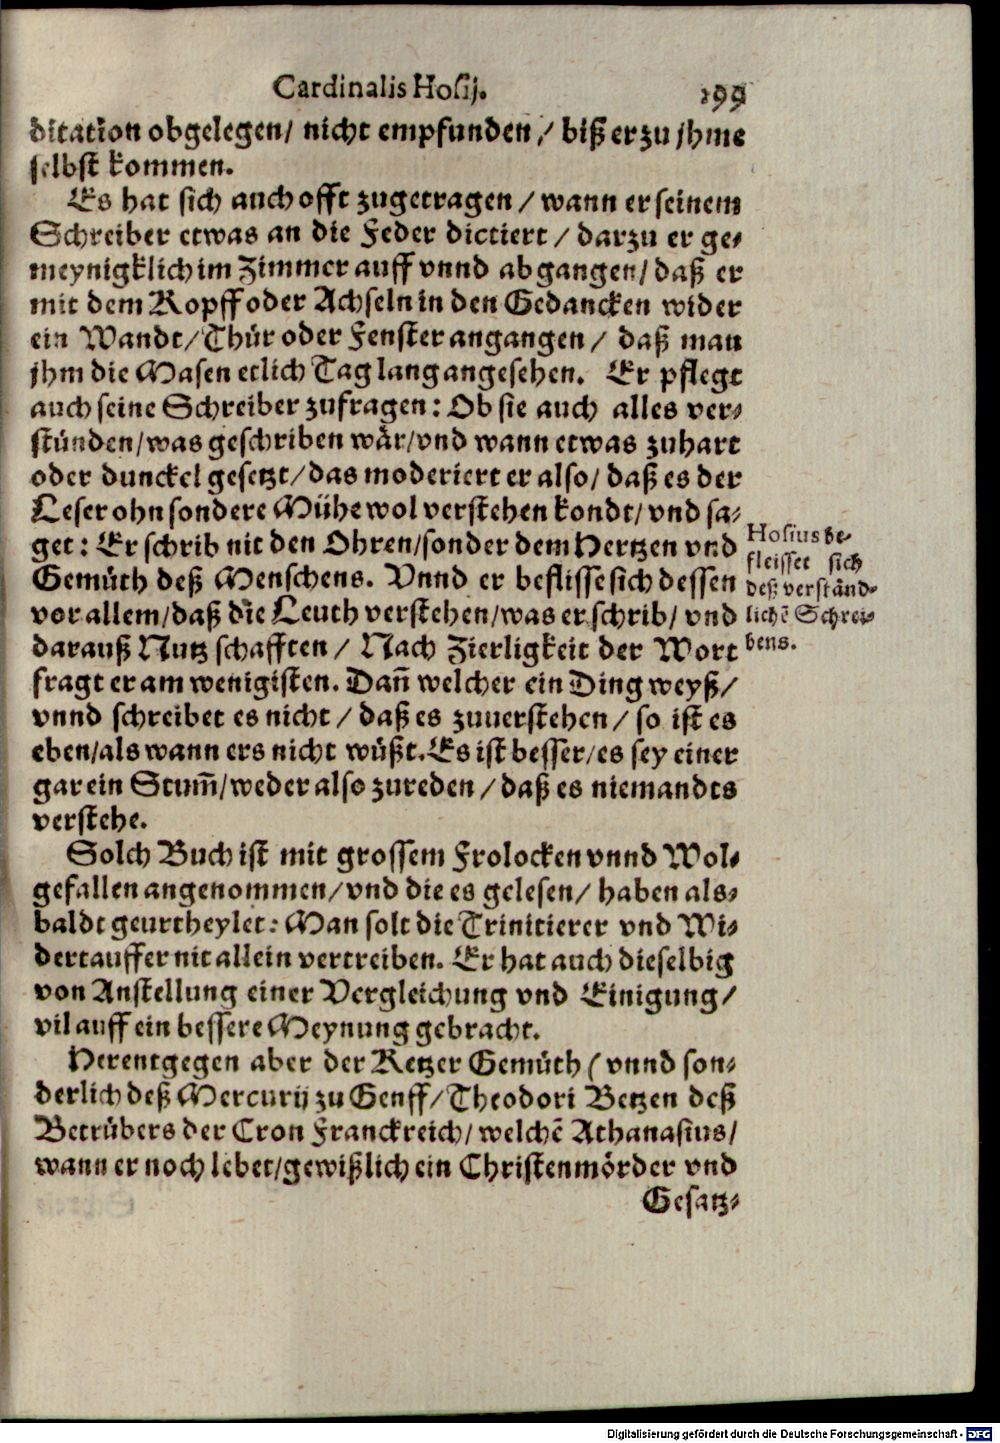 Cardinalis Hosij. 199
ditation obgelegen/ nicht empfunden/ biß er zu jhme
selbst kommen.
Es hat sich auch offt zugetragen/ wann er seinem
Schreiber etwas an die Feder dictiert/ darzu er ge-
meynigklich im Zimmer auff vnnd abgangen/ daß er
mit dem Kopff oder Achseln in den Gedancken wider
ein Wandt/ Thür oder Fenster angangen/ daß man
jhm die Masen etlich Tag lang angesehen. Er pflegt
auch seine Schreiber zufragen: Ob sie auch alles ver-
stünden/ was geschriben wär/ vnd wann etwas zuhart
oder dunckel gesetzt/ das moderiert er also/ daß es der
Leser ohn sondere Mühe wol verstehen kondt/ vnd sa-
get: Er schrib nit den Ohren/ sonder dem Hertzen vnd
Gemüth deß Menschens. Vnnd er beflisse sich dessen
vor allem/ daß die Leuth verstehen/ was er schrib/ vnd
darauß Nutz schafften/ Nach Zierligkeit der Wort
fragt er am wenigisten. Dañ welcher ein Ding weyß/
vnnd schreibet es nicht/ daß es zuuerstehen/ so ist es
eben/ als wann ers nicht wüßt. Es ist besser/ es sey einer
gar ein Stum̃/ weder also zureden/ daß es niemandts
verstehe.
Hosius be-
fleisset sich
deß verständ-
lichẽ Schrei-
bens.
Solch Buch ist mit grossem Frolocken vnnd Wol-
gefallen angenommen/ vnd die es gelesen/ haben als-
baldt geurtheylet: Man solt die Trinitierer vnd Wi-
dertauffer nit allein vertreiben. Er hat auch dieselbig
von Anstellung einer Vergleichung vnd Einigung/
vil auff ein bessere Meynung gebracht.
Herentgegen aber der Ketzer Gemüth (vnnd son-
derlich deß Mercurij zu Genff/ Theodori Betzen deß
Betrübers der Cron Franckreich/ welchẽ Athanasius/
wann er noch lebet/ gewißlich ein Christenmörder vnd
Gesatz-
Digitalisierung gefördert durch die Deutsche Forschungsgemeinschaft - DFG